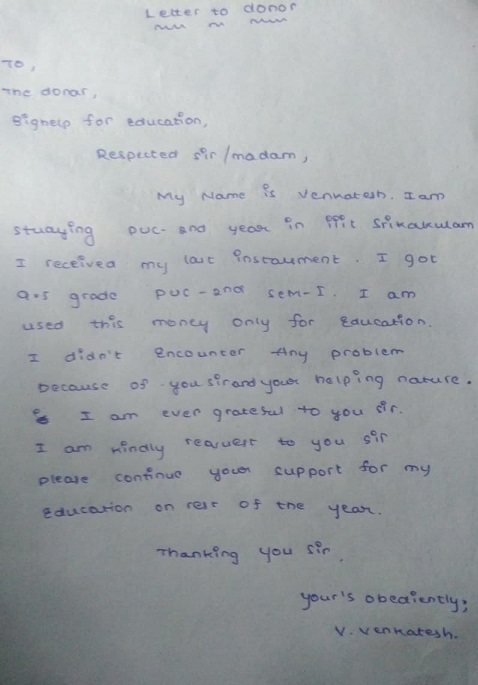 Letter to donor
To,
The donar,
Bighelp for education,
Respected sir/madam,
My Name is Venkatesh. I am
studying PUC-2nd year in IIIT Srikakulam
I received my last installment. I got
9.5 grade PUC-2nd SEM-I. I am
used this money only for Education.
I didn't Encounter Any problem
because of you sir and your helping nature.
I am ever grateful to you sir.
I am kindly request to you sir
please continue your support for my
Education on rest of the year.
Thanking you sir.
your's obediently;
V. Venkatesh.